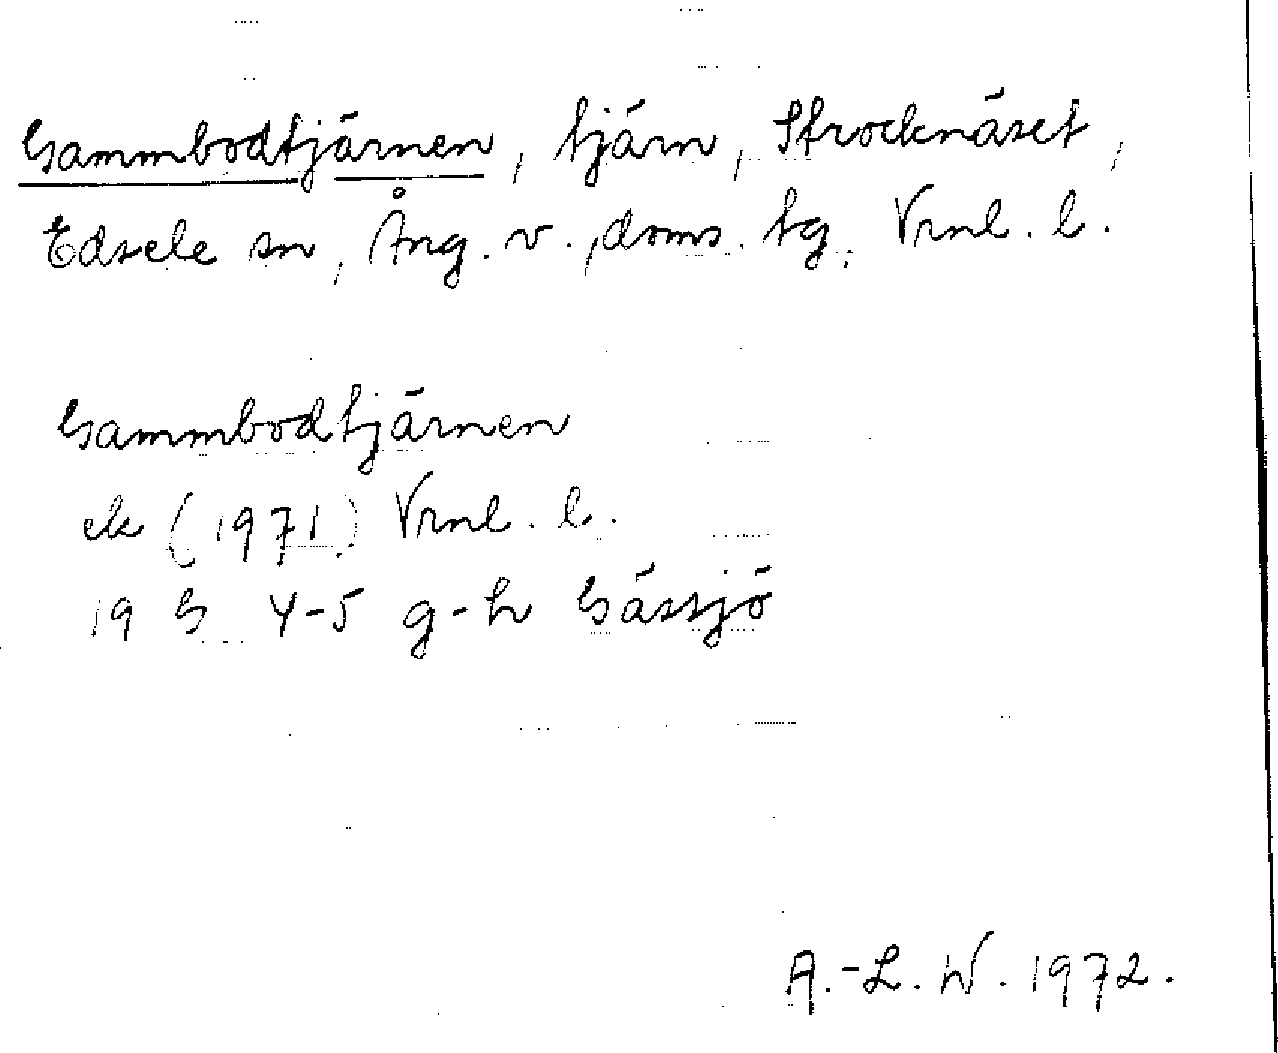 Gammbodtjärnen, tjärn, Strocknäset,
Edsele sn, Ång. v., doms. tg. Vrnl. l.
Gammbodtjärnen
ek (1971) Vrnl. l.
19 G 4-5 g-h Gässjö
A.-L. W. 1972.